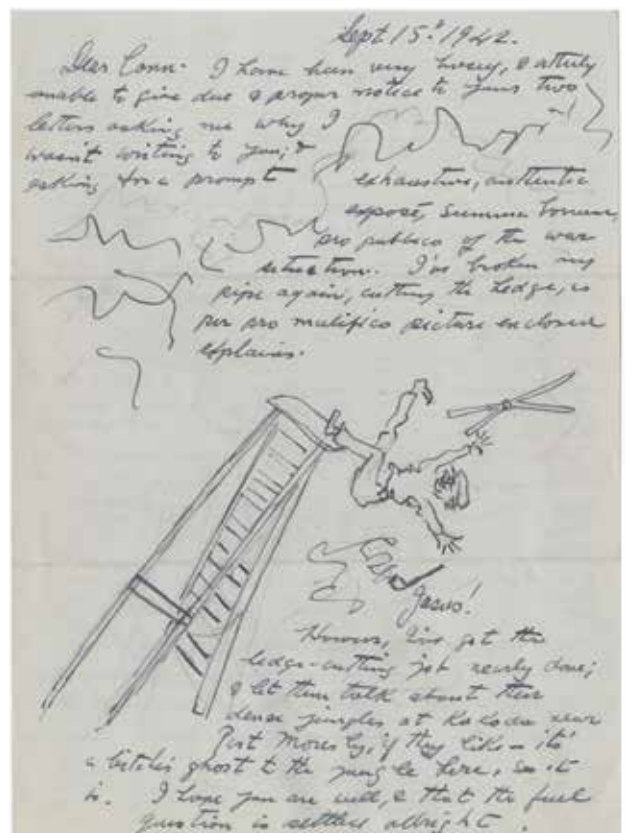 Sept. 15th 1942.
Dear Conn. I have been very busy, & utterly
unable to give due & proper notice to your two
letters asking me why I
wasn't writing to you; &
asking for a prompt
exhaustive, authentic
exposé, summa bonum,
pro publico of the war
situation. I've broken my
pipe again, cutting the hedge, as
per pro picture enclosed
explains.
Good
Jasus!
However, I've got the
hedge-cutting job nearly done;
& let them talk about their
dense jungles at Kokoda near
Port Moresby, if they like – its
a bitch's ghost to the jungle here, so it
is. I hope you are well, & that the fuel
question is settled allright.